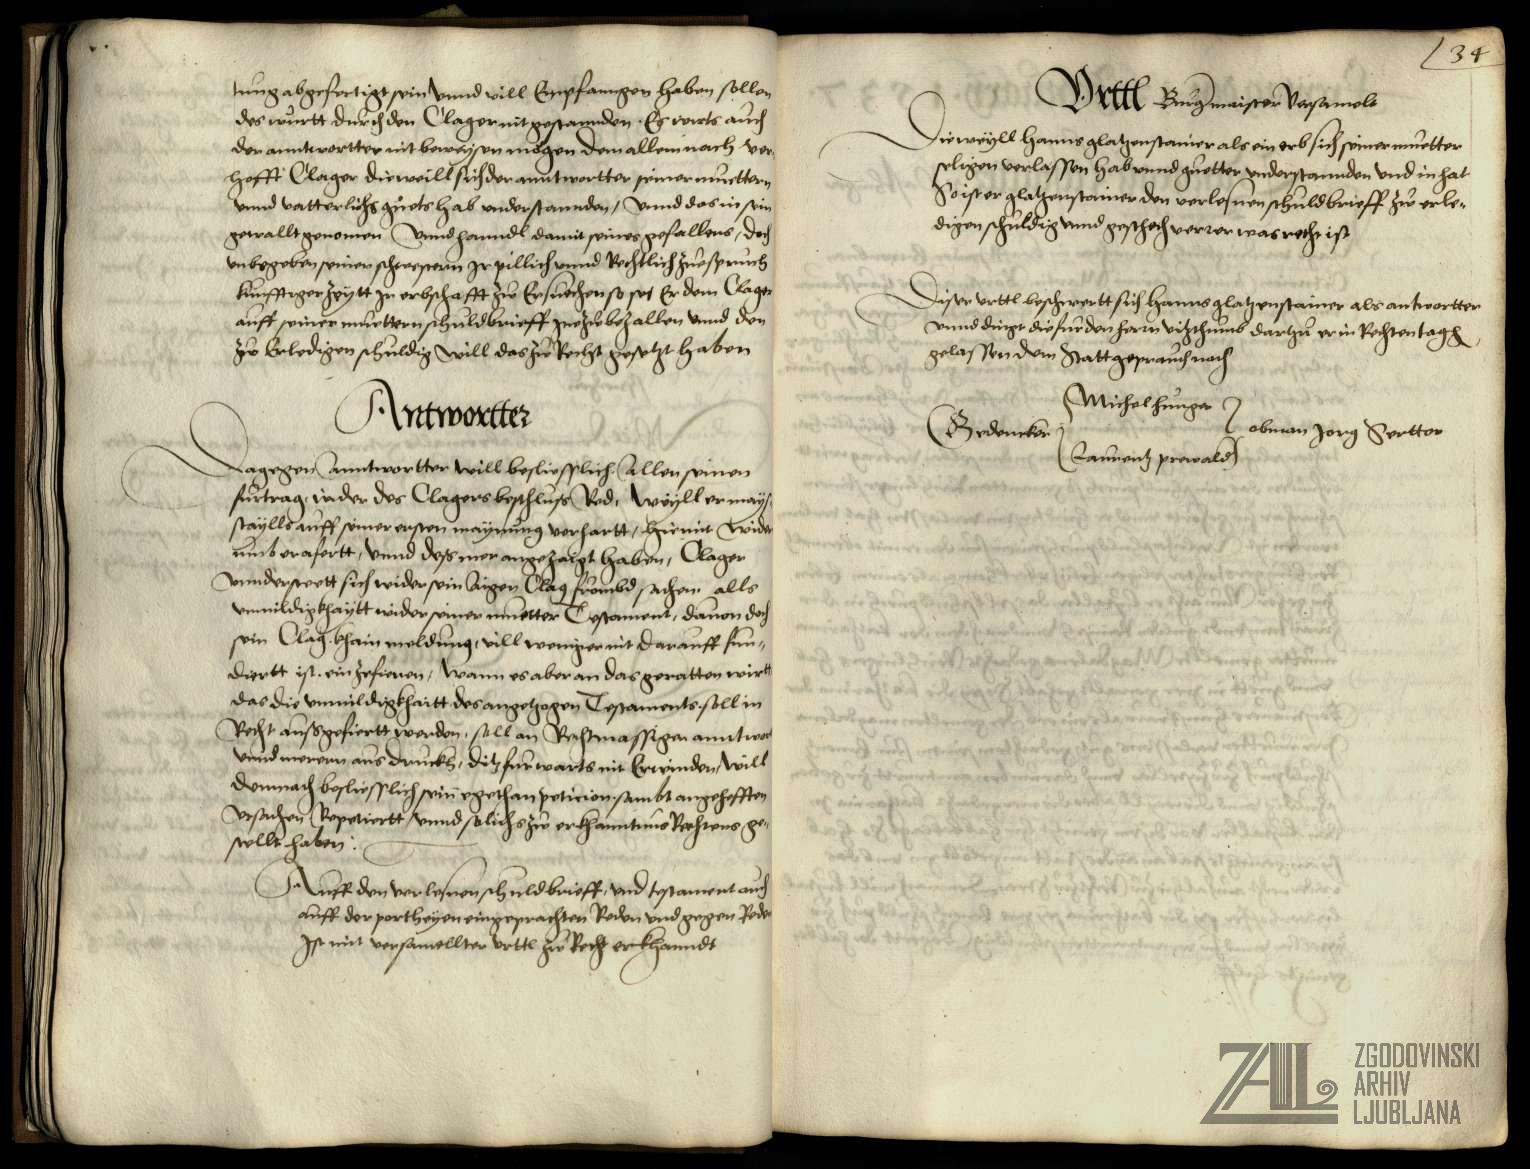 tung abgefertigt sein unnd vill Empfanngen haben sollen
des wurtt durch den Clager nit gestannden. Es wirts auch
der anntwortter nit beweysen mögen dem allem nach ver-
hofft Clager dieweill sich der anntwortter seiner muettern
unnd vatterlichs guets hab understannden, unnd das in sein
gewallt genomen unnd hanndl damit seines gefallens, doch
unbegeben seiner schwestern Ir pillich unnd Rechtlich zuespruch
kunfftiger zeytt In erbschafft zw Ersuechen so sey Er dem Clager
auff seiner muettern schuldbrieff Ine zw bezallen unnd den
zw Erledigen schuldig will das zw Recht gesetzt haben
Antwortter
Dagegen Anntwortter will besliesslich Allen seinen
furtrag, wider des Clagers beschluss Red, weyll er mays-
taylls auff seiner ersten maynung verhartt, hiemit wider
umb eräfertt, unnd dess mer angezaigt haben, Clager
unndersteett sich wider sein Aigen Clag frombd sachen alls
unmildigkhaytt wider seiner muetter Testament, dauon doch
sein Clag khain meldung, vill weniger nit darauff fun-
diertt ist, einzefieren, wann es aber an das geratten wirtt
das die unmildigkhaitt des angetzogen Testaments soll in
Recht aussgefiertt werden, soll an Rechtmassiger anntwort
unnd merern aus druckh, ditz furwarts nit Erwinden, will
demnach besliesslich sein egethan peticion sambt angehefften
ursachen Repetiertt, unnd solichs zw erkhanntnus Rechtens ge-
stellt haben :
Auff den verlesnen schuldbrieff, und testament auch
auff der portheyen eingeprachten Reden und gegen Reden
Ist mit versamellter urttl zw Recht erkhanndt
34
Urttl Burgmaister Versamelt
Dieweyll Hanns glatzenstainer als ein erb sich seiner muetter
seligen verlassen hab unnd guetter understannden und in hat
So ist er glatzenstainer den verlesnen schuldbrieff zw erle-
digen schuldig unnd geschech verrer was recht ist
Diser urttl beschwertt sich Hanns glatzenstainer als antwortter
unnd dingt die fur den herrn vitzthumb dartzu er in Rechten tag
gelassen dem Statt geprauch nach
Michel hunger
Gedencker obman Jorg Sertter
Laurentz prewald
ZAL ZGODOVINSKI
ARHIV
LJUBLJANA